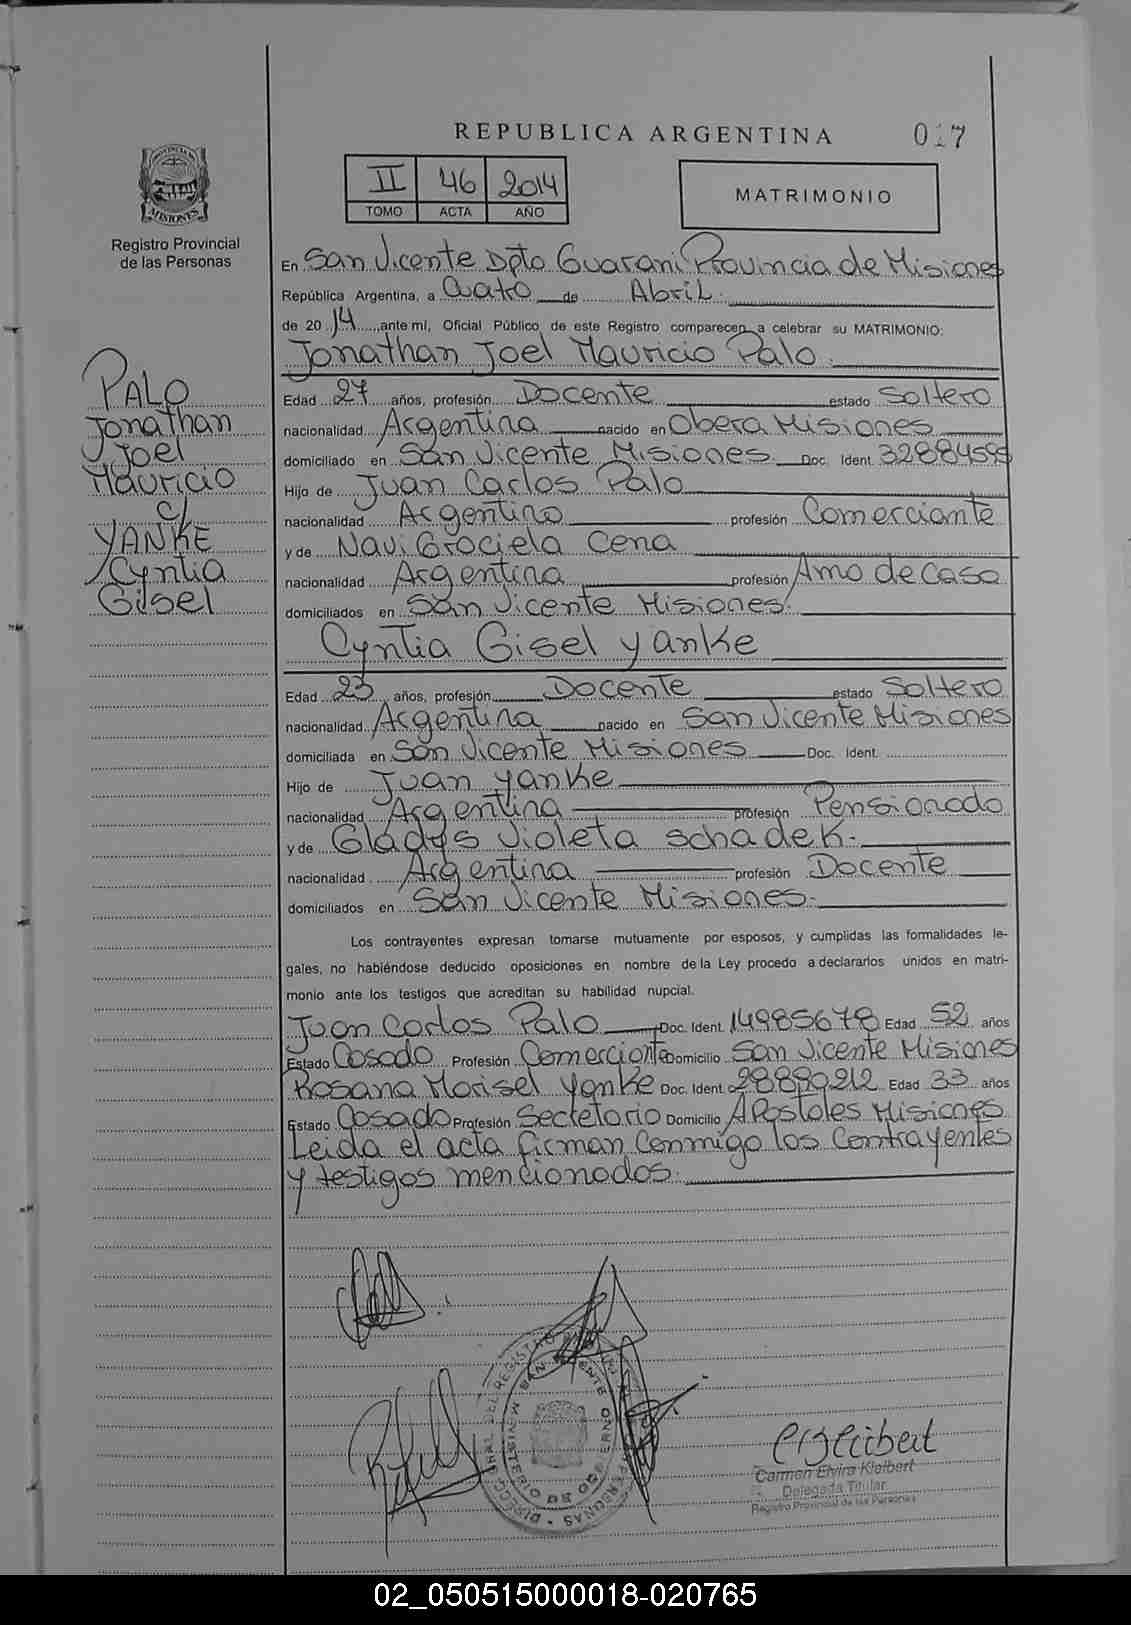 REPUBLICA ARGENTINA
017
II 46 2014
TOMO ACTA AÑO
MATRIMONIO
MISIONES
Registro Provincial
de las Personas
En San Vicente Dpto Guarani Provincia de Misiones
República Argentina, a Cuatro de Abril.
de 2014, ante mí, Oficial Público de este Registro comparecen a celebrar su MATRIMONIO:
Jonathan Joel Mauricio Palo.
PALO
Jonathan
Joel
Mauricio
c/
YANKE
Cyntia
Gisel
Edad 27 años, profesión Docente estado Soltero
nacionalidad Argentina nacido en Obera Misiones
domiciliado en San Vicente Misiones Doc. Ident. 32884595
Hijo de Juan Carlos Palo
nacionalidad Argentino profesión Comerciante
y de Navi Graciela Cena
nacionalidad Argentina profesión Ama de Casa
domiciliados en San Vicente Misiones.
Cyntia Gisel Yanke
Edad 23 años, profesión Docente estado Soltero
nacionalidad Argentina nacido en San Vicente Misiones
domiciliada en San Vicente Misiones Doc. Ident.
Hijo de Juan Yanke
nacionalidad Argentina profesión Pensionado
y de Gladys Violeta Schadek.
nacionalidad Argentina profesión Docente
domiciliados en San Vicente Misiones.
Los contrayentes expresan tomarse mutuamente por esposos, y cumplidas las formalidades le-
gales, no habiéndose deducido oposiciones en nombre de la Ley procedo a declararlos unidos en matri-
monio ante los testigos que acreditan su habilidad nupcial.
Juan Carlos Palo Doc. Ident. 14985678 Edad 52 años
Estado Casado Profesión Comerciante Domicilio San Vicente Misiones
Rosana Marisel Yanke Doc. Ident. 28889212 Edad 33 años
Estado Casado Profesión Secretario Domicilio Apostoles Misiones
Leida el acta firman conmigo los Contrayentes
y testigos mencionados.
Carmen Elvira Kleibert
Delegada Titular
Registro Provincial de las Personas
02_050515000018-020765